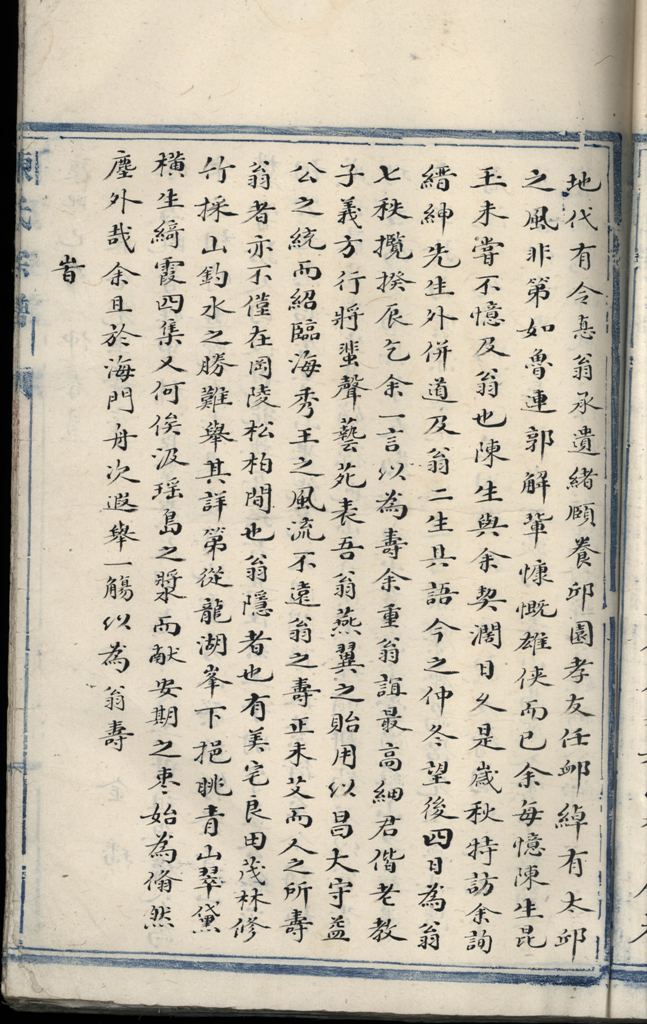 地代有令悳翁承遺緒頤養邱園孝友任卹綽有太邱
之風非第如魯連郭解軰慷慨雄俠而已余每憶陳生昆
玉未嘗不憶及翁也陳生與余契濶日久是歲秋特訪余詢
縉紳先生外併道及翁二生具語今之仲冬望後四日為翁
七秩攬揆辰乞余一言以為壽余重翁誼最高細君偕老教
子義方行將蜚聲藝苑表吾翁燕翼之貽用以昌大守益
公之統而紹臨海秀王之風流不遠翁之壽正未艾而人之所壽
翁者亦不僅在岡陵松柏間也翁隱者也有美宅良田茂林修
竹採山釣水之勝難舉其詳第從龍湖峯下挹眺青山翠黛
橫生綺霞四集又何俟汲瑶島之漿而献安期之枣始為翛然
塵外哉余且於海門舟次遐舉一觴以為翁壽
旹
陳氏宗譜